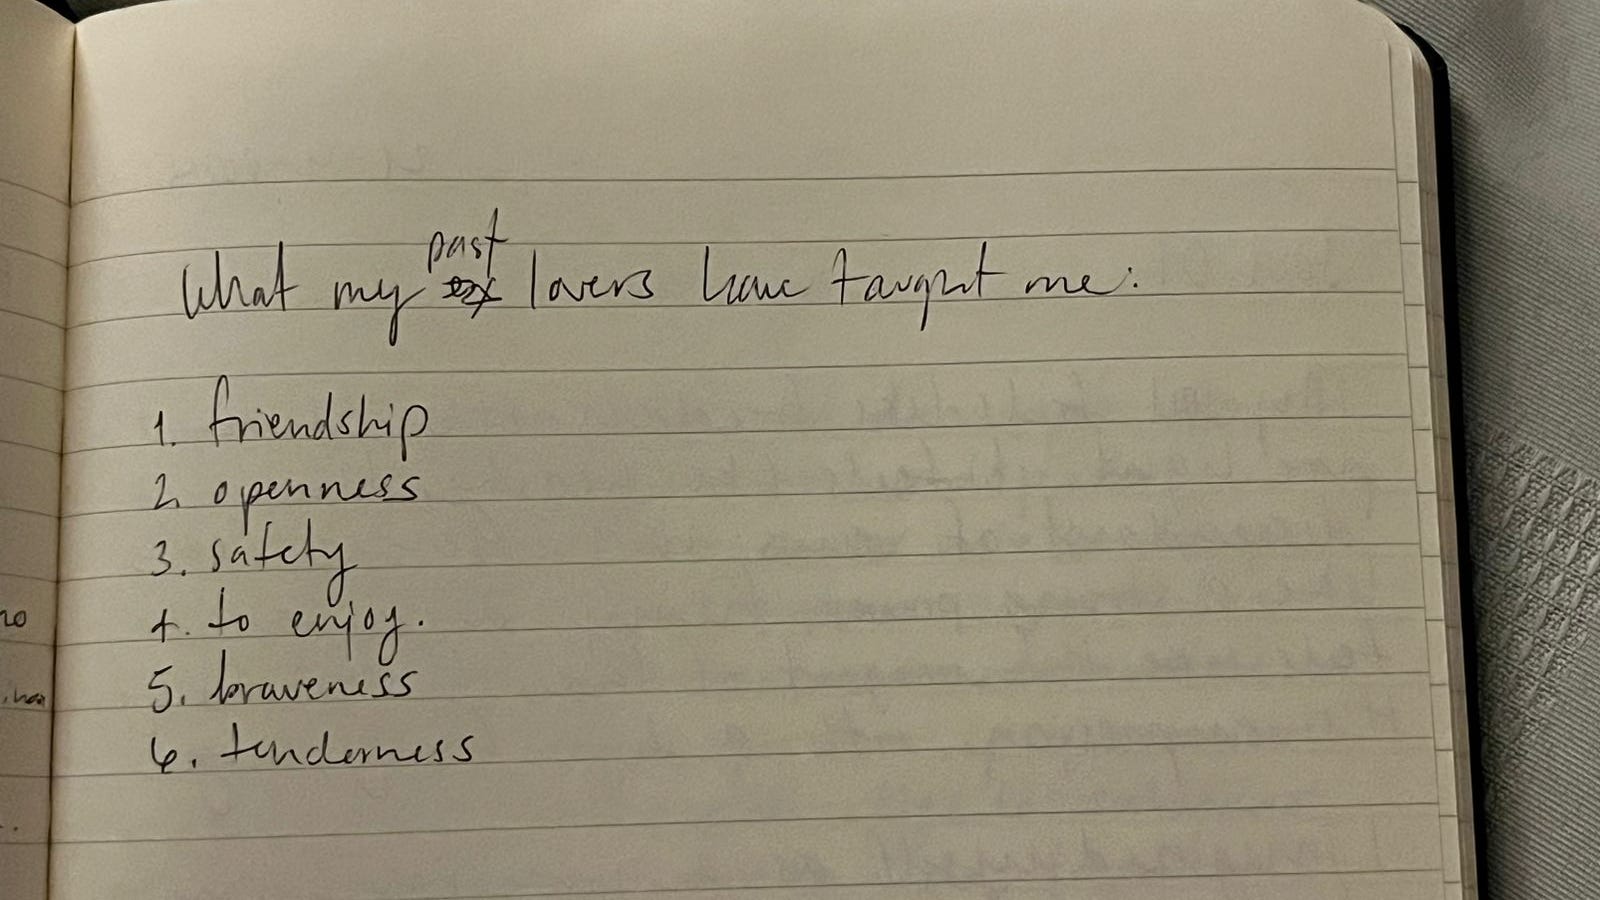 What my past lovers have taught me:
1. friendship
2. openness
3. safety
4. to enjoy.
5. braveness
6. tenderness
no